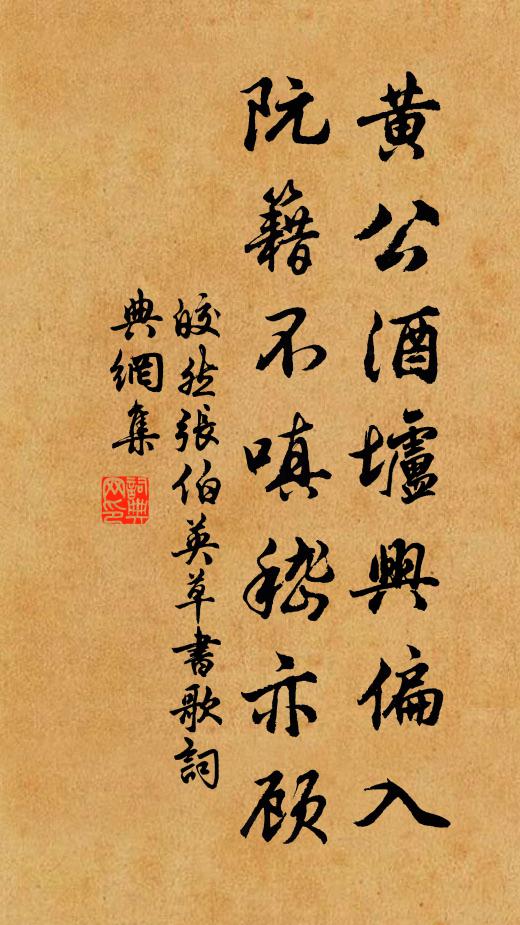 黄公酒壚興偏入
阮籍不嗔嵇亦顾
皎然張伯英草書歌詞
典網集
詞典網印